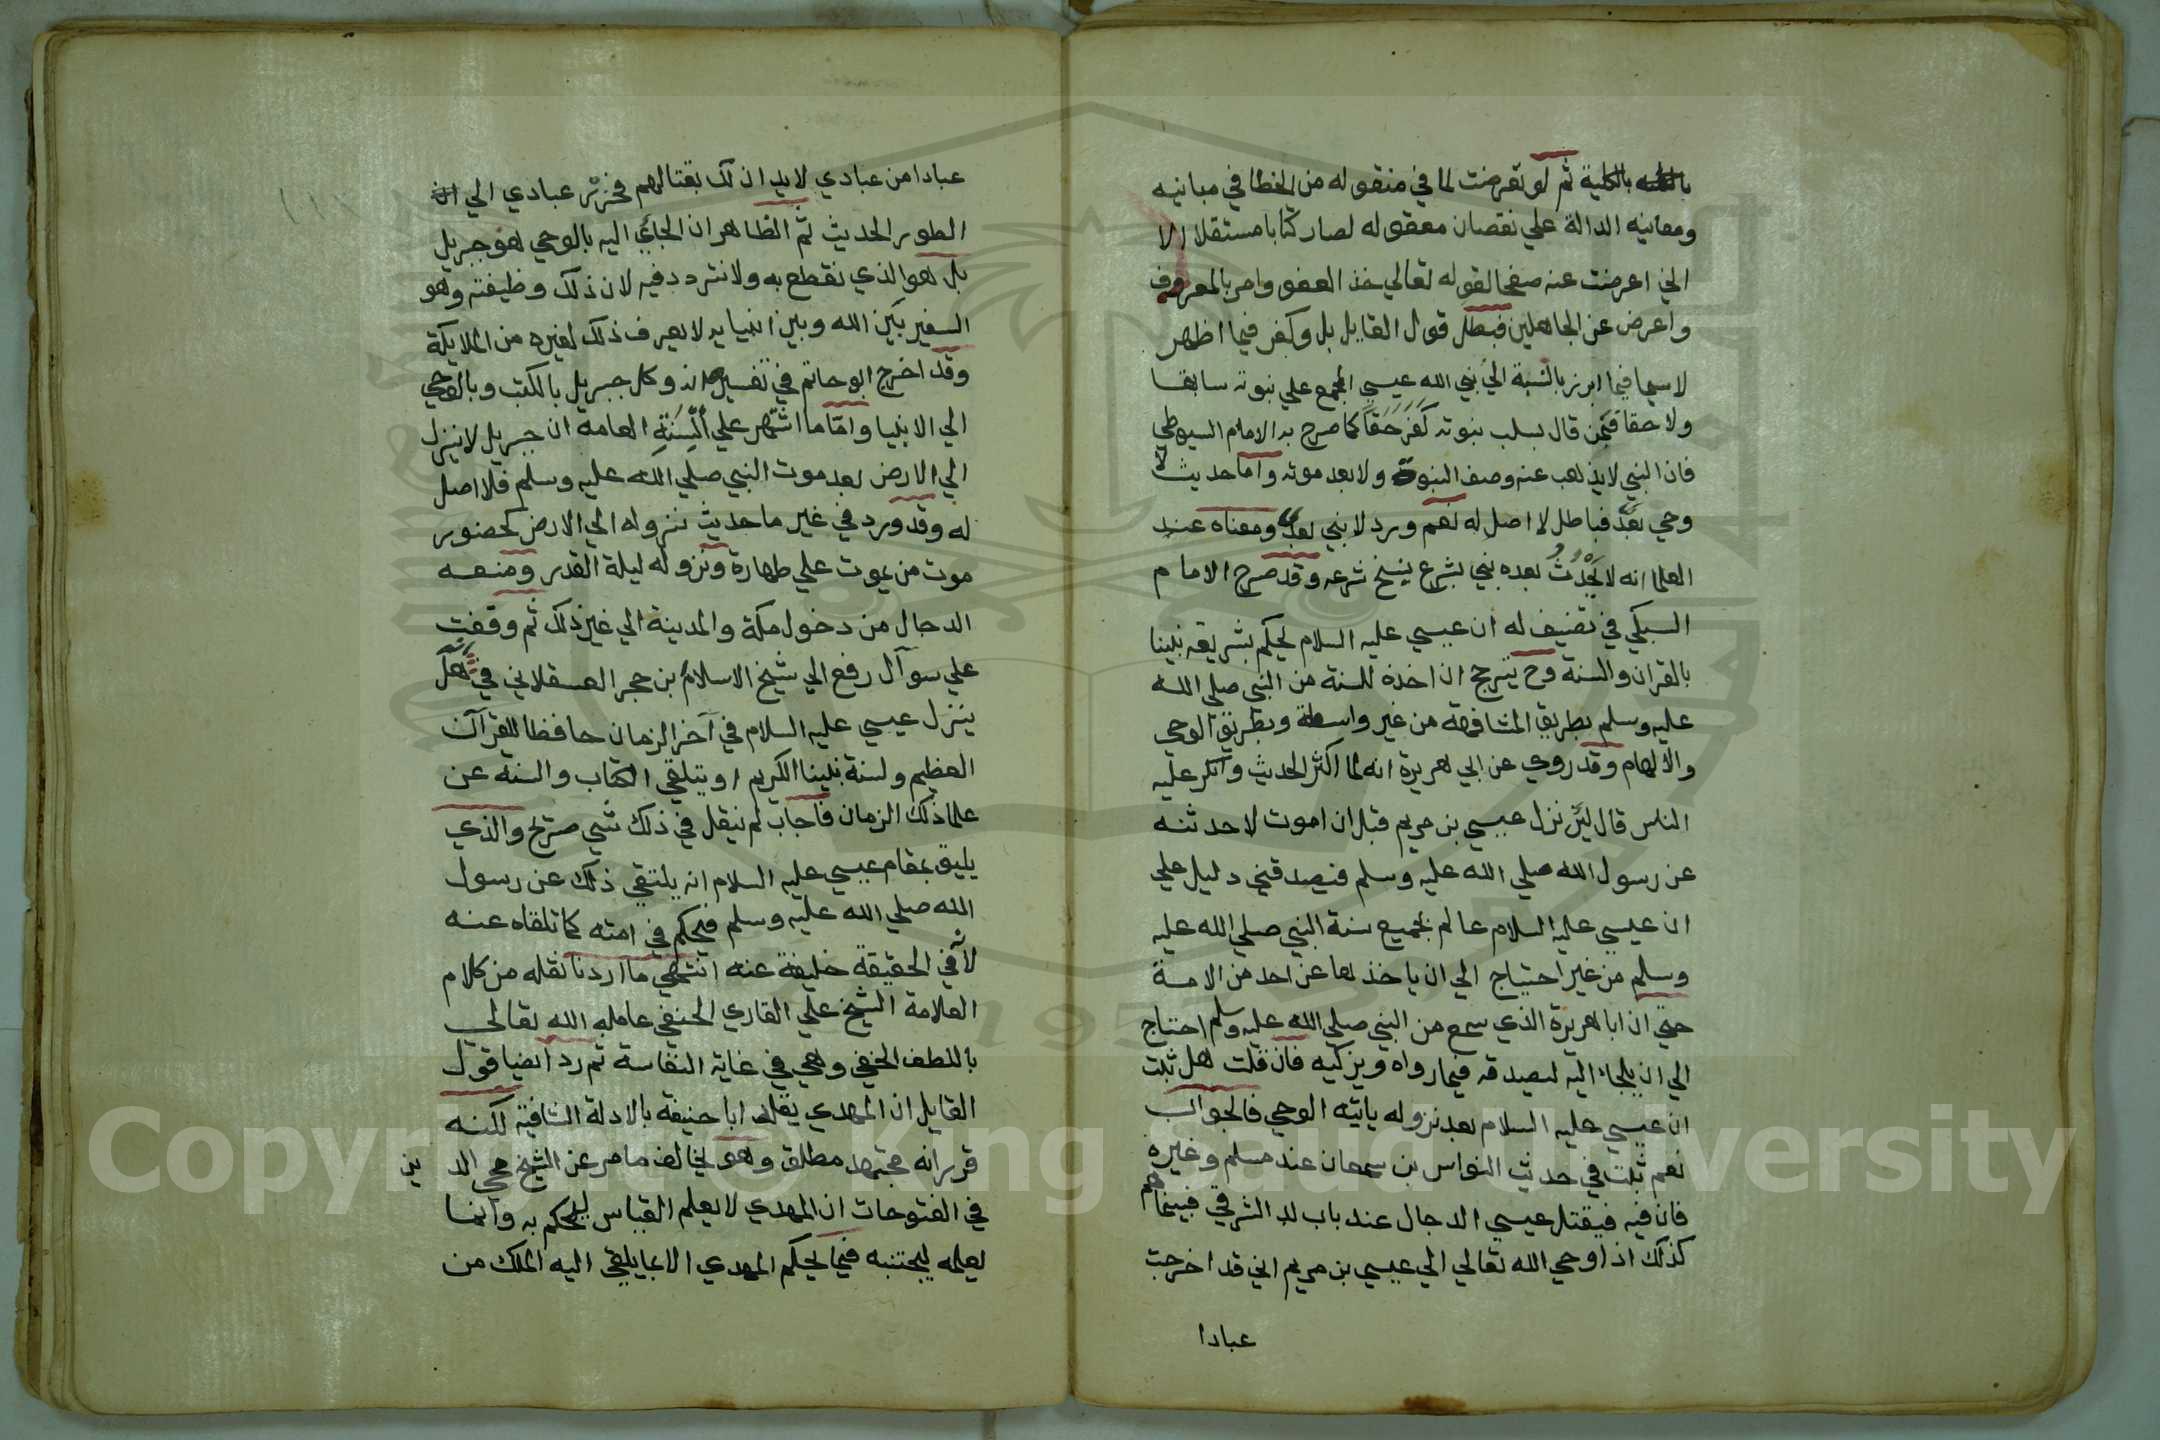 بالكلية ثم لو تعرضت لما في منقوله من الخطا في مبانيه
ومعانيه الدالة علي نقصان معقوله لصار كتابا مستقلا الا
اني اعرضت عنه صفحا لقوله تعالي خذ العفو وامر بالمعروف
واعرض عن الجاهلين فبطل قول القايل بل وكفر فيما اظهر
لا سيما فيما ابرز بالنسبة الي نبي الله عيسي المجمع علي نبوته سابقا
ولا حقا فمن قال بسلب نبوته كَفَرَ حَقاً كما صرح به الامام السيوطي
فان النبي لا يذهب عنه وصف النبوة ولا بعد موته واما حديث لا
وحي بعدي فباطل لا اصل له نعم ورد لا نبي بعدي ومعناه عند
العلما انه لا يَحْدُثُ بعده نبي بشرع ينسخ شرعه وقد صرح الامام
السبكي في تصنيف له ان عيسي عليه السلام يحكم بشريعة نبينا
بالقران والسنة وح يترجح ان اخذه للسنة من النبي صلي الله
عليه وسلم بطريق المشافهة من غير واسطة وبطريق الوحي
والالهام وقد روي عن ابي هريرة انه لما اكثر الحديث وانكر عليه
الناس قال لئن نزل عيسي بن مريم قبل ان اموت لاحدثنه
عن رسول الله صلي الله عليه وسلم فيصدقني دليل علي
ان عيسي عليه السلام عالم بجميع سنة النبي صلي الله عليه
وسلم من غير احتياج الي ان ياخذها عن احد من الامة
حتي ان ابا هريرة الذي سمع من النبي صلي الله عليه وسلم احتاج
الي ان يلجا اليه ليصدقه فيما رواه ويزكيه فان قلت هل ثبت
ان عيسي عليه السلام بعد نزوله ياتيه الوحي فالجواب
نعم ثبت في حديث النواس بن سمعان عند مسلم وغيره
فان فيه فيقتل عيسي الدجال عند باب لد الشرقي فبينما هم
كذلك اذ اوحي الله تعالي الي عيسي بن مريم اني قد اخرجت
عبادا
عبادا من عبادي لا يدان لك بقتالهم فحرز عبادي الي
الطور الحديث ثم الظاهر ان الجائي اليه بالوحي هو جبريل
بل هو الذي نقطع به ولا نتردد فيه لان ذلك وظيفته وهو
السفير بين الله وبين انبيايه لا يعرف ذلك لغيره من الملايكة
وقد اخرج ابو حاتم في تفسيره انه وكل جبريل بالكتب وبالوحي
الي الانبيا واما ما اشتهر علي ألسنة العامه ان جبريل لا ينزل
الي الارض بعد موت النبي صلي الله عليه وسلم فلا اصل
له وقد ورد في غير ما حديث نزوله الي الارض كحضور
موت من يموت علي طهارة ونزوله ليلة القدر ومنعه
الدجال من دخول مكة والمدينة الي غير ذلك ثم وقفت
علي سوآل رفع الي شيخ الاسلام بن حجر العسقلاني في هل
ينزل عيسي عليه السلام في آخر الزمان حافظا للقرآن
العظيم ولسنة نبينا الكريم او يتلقي الكتاب والسنة عن
علما ذلك الزمان فاجاب لم ينقل في ذلك شي صريح والذي
يليق بمقام عيسي عليه السلام انه يلتقي ذلك عن رسول
الله صلي الله عليه وسلم فيحكم في امته كما تلقاه عنه
لأنه في الحقيقة خليفة عنه انتهي ما اردنا نقله من كلام
العلامة الشيخ علي القاري الحنفي عامله الله تعالي
باللطف الخفي وهي في غاية النفاسة ثم رد ايضا قول
القايل ان المهدي يقلد ابا حنيفة بالادلة الشافية لكنه
قرر انه مجتهد مطلق وهو يخالف ما مر عن الشيخ محي الدين
في الفتوحات ان المهدي لا يعلم القياس ليحكم به وانما
يعلمه ليجتنبه فما يحكم المهدي الا بما يلقي اليه الملك من
Copyright © King Saud University